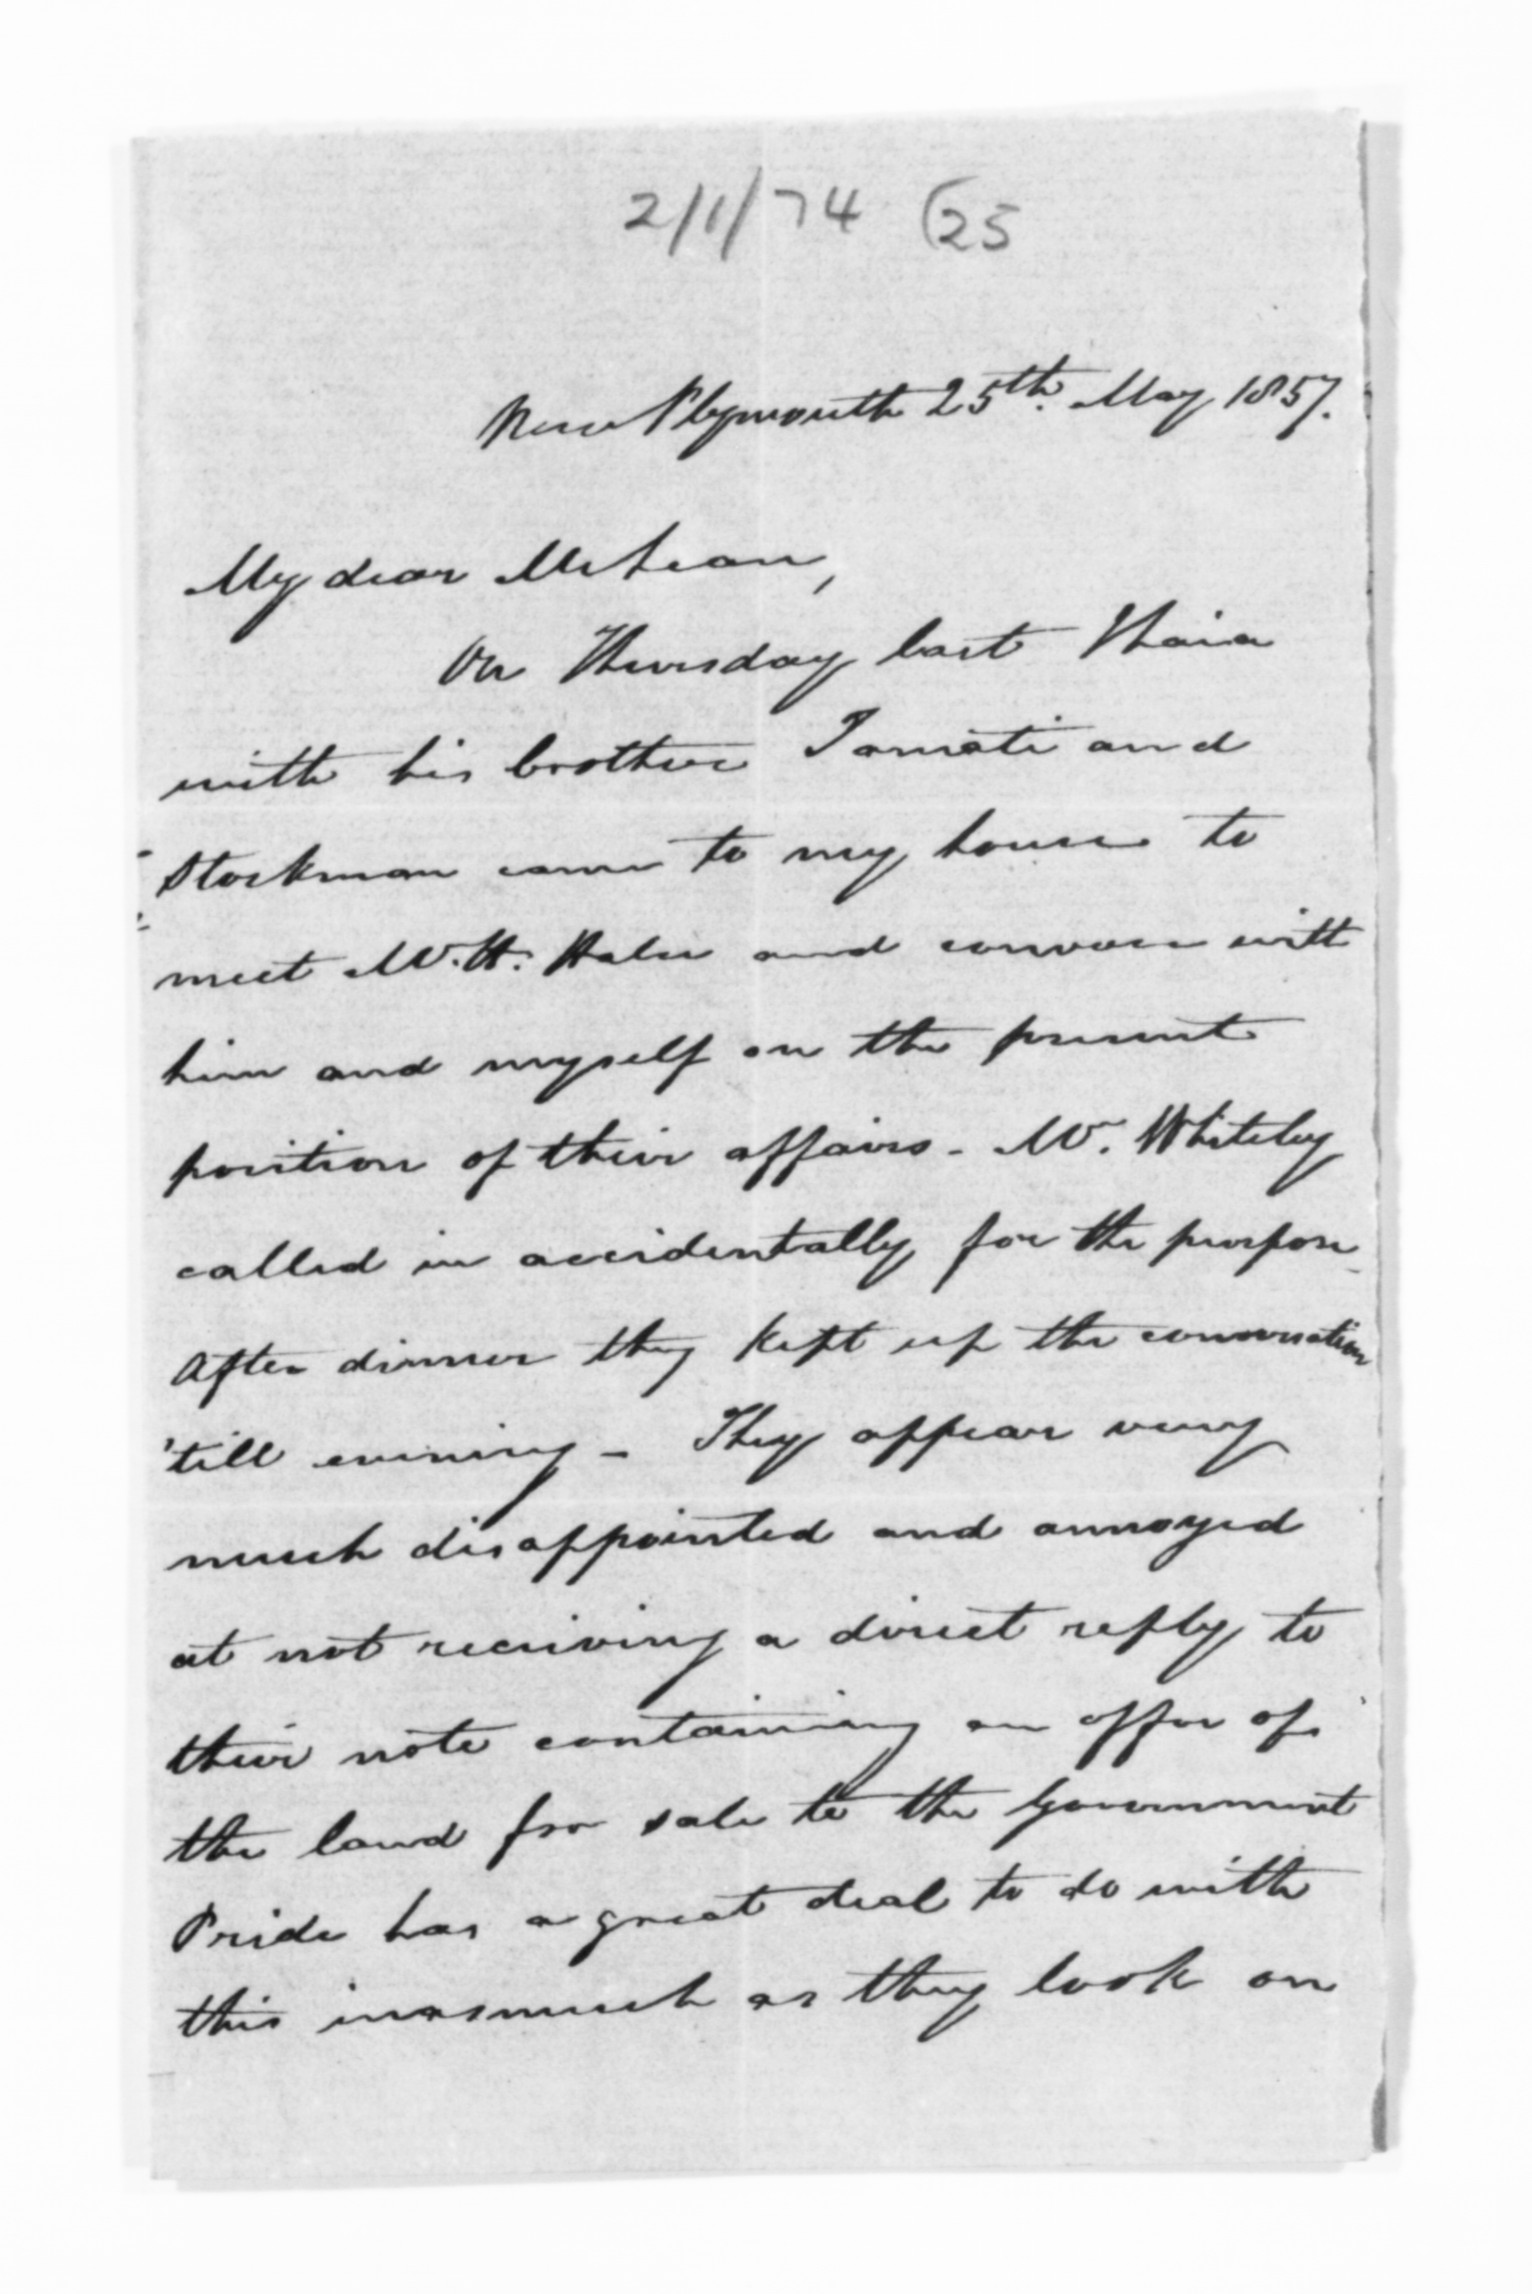 2/1/74 (25
New Plymouth 25th. May 1857.
My dear McLean,
On Thursday last Ihaia
with his brother Tamati and
Stockman came to my house to
meet Mr. H. Halse and converse with
him and myself on the present
position of their affairs - Mr. Whiteley
called in accidentally for the purpose -
After dinner they kept up the conversation
'till evening - They appear very
much disappointed and annoyed
at not receiving a direct reply to
their note containing an offer of
the land for sale to the Government
Pride has a great deal to do with
this inasmuch as they look on